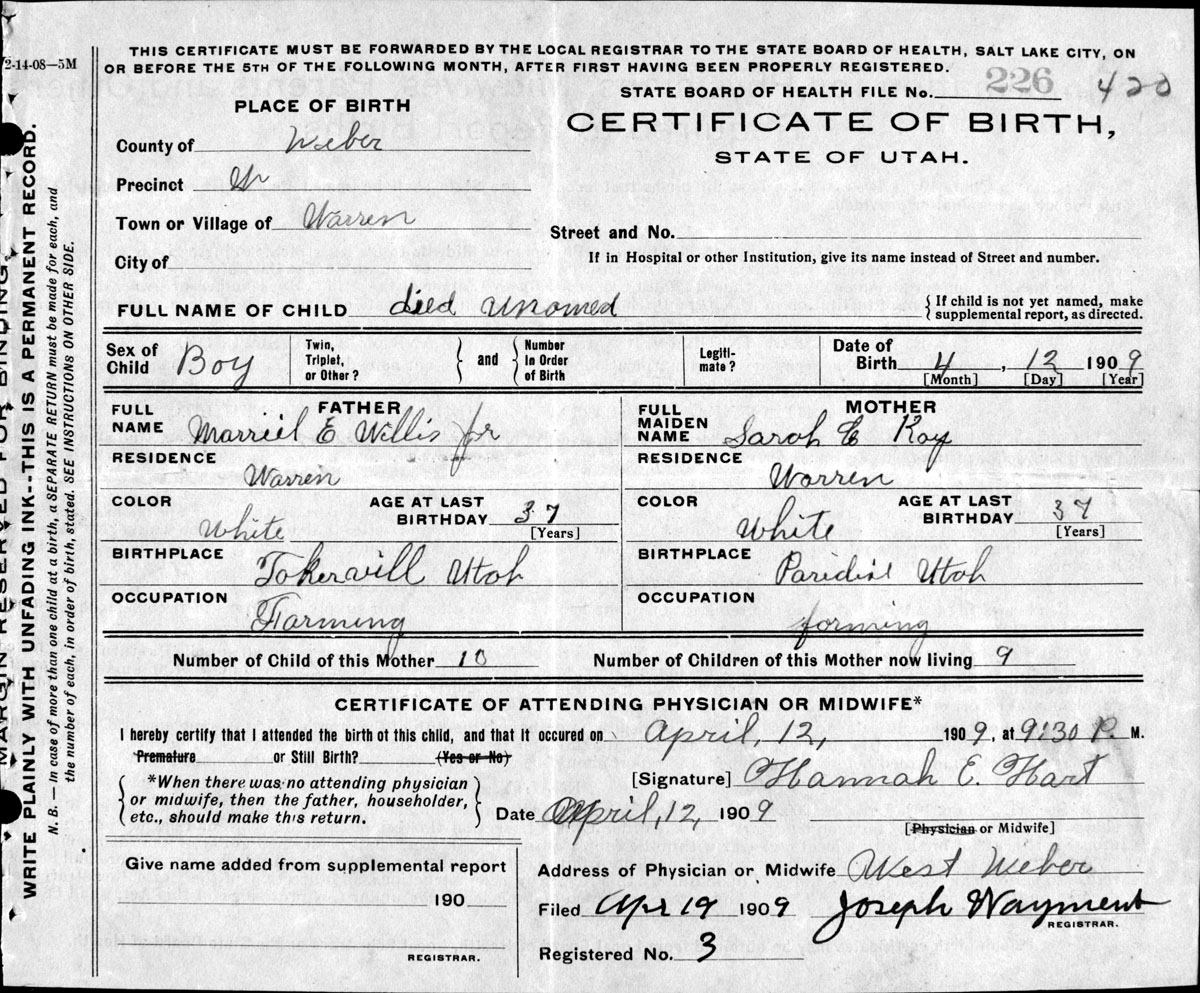 2-14-08—5M
THIS CERTIFICATE MUST BE FORWARDED BY THE LOCAL REGISTRAR TO THE STATE BOARD OF HEALTH, SALT LAKE CITY, ON
OR BEFORE THE 5TH OF THE FOLLOWING MONTH, AFTER FIRST HAVING BEEN PROPERLY REGISTERED.
STATE BOARD OF HEALTH FILE No. 226 420
PLACE OF BIRTH
CERTIFICATE OF BIRTH,
STATE OF UTAH.
County of Weber
Precinct
Town or Village of Warren
Street and No.
If in Hospital or other Institution, give its name instead of Street and number.
City of
FULL NAME OF CHILD died Unomed
{ If child is not yet named, make
supplemental report, as directed.
Sex of Child Boy
Twin, Triplet, or Other? } and { Number In Order of Birth
Legiti-mate?
Date of Birth 4, 12 1909
[Month] [Day] [Year]
FATHER
FULL NAME Marriel E Willis jr
RESIDENCE Warren
COLOR White
AGE AT LAST BIRTHDAY 37
[Years]
BIRTHPLACE Tokervill Utah
OCCUPATION Farming
MOTHER
FULL MAIDEN NAME Sarah E Kay
RESIDENCE Warren
COLOR White
AGE AT LAST BIRTHDAY 37
[Years]
BIRTHPLACE Paridise Utah
OCCUPATION forming
Number of Child of this Mother 10
Number of Children of this Mother now living 9
CERTIFICATE OF ATTENDING PHYSICIAN OR MIDWIFE*
I hereby certify that I attended the birth of this child, and that it occured on April, 12, 1909, at 9:30 P. M.
Premature or Still Birth? (Yes or No)
*When there was no attending physician
or midwife, then the father, householder,
etc., should make this return.
[Signature] Hannah E. Hart
Date April, 12, 1909
[Physician or Midwife]
Give name added from supplemental report
190
REGISTRAR.
Address of Physician or Midwife West Weber
Filed Apr 19 1909 Joseph Wayment
REGISTRAR.
Registered No. 3
MARGIN RESERVED FOR BINDING
WRITE PLAINLY WITH UNFADING INK--THIS IS A PERMANENT RECORD.
N. B.—In case of more than one child at a birth, a SEPARATE RETURN must be made for each, and
the number of each, in order of birth, stated. SEE INSTRUCTIONS ON OTHER SIDE.